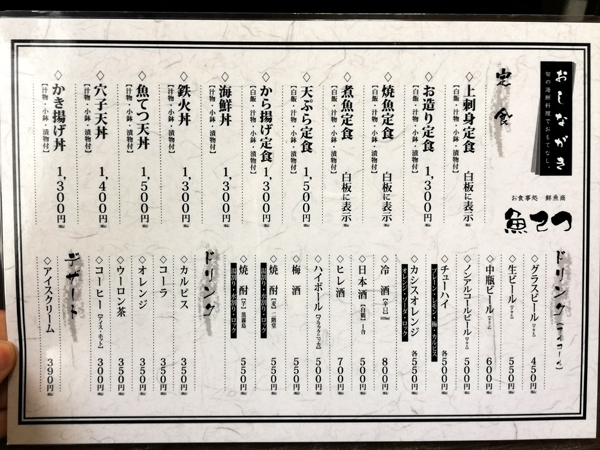 おしながき
旬の海鮮料理でおもてなし。
お食事処 鮮魚商
魚てつ
定食
◇上刺身定食 白板に表示
【白飯・汁物・小鉢・漬物付】
◇お造り定食 1,300円
【白飯・汁物・小鉢・漬物付】
◇焼魚定食 白板に表示
【白飯・汁物・小鉢・漬物付】
◇煮魚定食 白板に表示
【白飯・汁物・小鉢・漬物付】
◇天ぷら定食 1,500円
【白飯・汁物・小鉢・漬物付】
◇から揚げ定食 1,300円
【白飯・汁物・小鉢・漬物付】
◇海鮮丼 1,300円
【汁物・小鉢・漬物付】
◇鉄火丼 1,300円
【汁物・小鉢・漬物付】
◇魚てつ天丼 1,500円
【汁物・小鉢・漬物付】
◇穴子天丼 1,400円
【汁物・小鉢・漬物付】
◇かき揚げ丼 1,300円
【汁物・小鉢・漬物付】
ドリンク
◇グラスビール 450円
◇生ビール 550円
◇中瓶ビール 600円
◇ノンアルコールビール 500円
◇チューハイ 各500円
◇カシスオレンジ 各550円
◇冷酒【辛口】 800円
◇日本酒 1合 500円
◇ヒレ酒 700円
◇ハイボール 500円
◇梅酒 550円
◇焼酎【麦】二階堂 550円
◇焼酎【芋】黒霧島 550円
ドリンク
◇カルピス 350円
◇コーラ 350円
◇オレンジ 350円
◇ウーロン茶 350円
◇コーヒー【アイス・ホット】 300円
デザート
◇アイスクリーム 390円